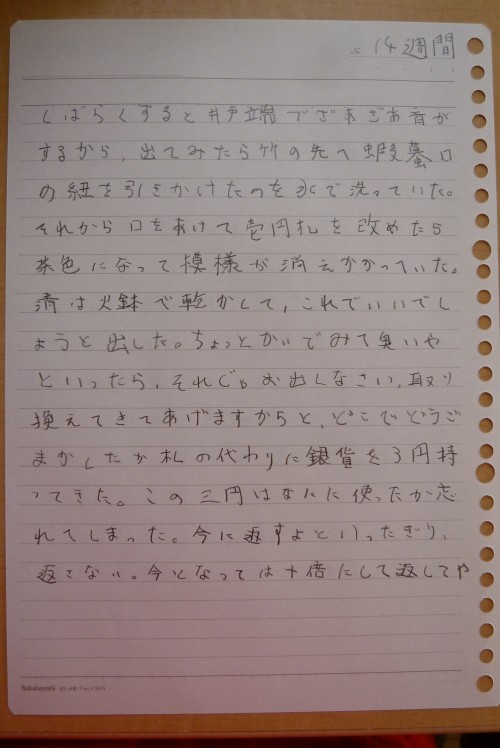 14週間
しばらくすると井戸端でざあざあ音が
するから、出てみたら竹の先へ蝦蟇口
の紐を引きかけたのを水で洗っていた。
それから口をあけて壱円札を改めたら
茶色になって模様が消えかかっていた。
清は火鉢で乾かして、これでいいでし
ょうと出した。ちょっとかいでみて臭いや
といったら、それじゃお出しなさい、取り
換えてきてあげますからと、どこでどうご
まかしたか札の代わりに銀貨を3円持
ってきた。この三円はなにに使ったか忘
れてしまった。今に返すよといったぎり、
返さない。今となっては十倍にして返してや
Nakabayashi